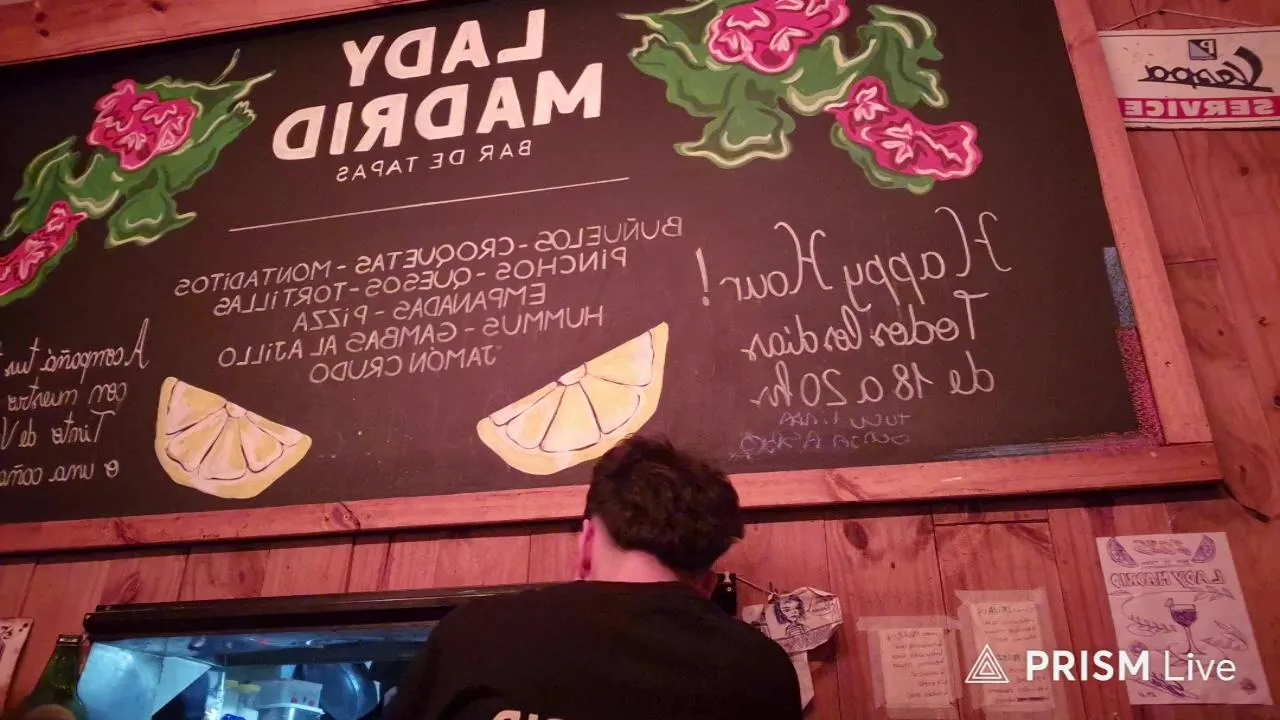 LADY
MADRID
BAR DE TAPAS
BUÑUELOS - CROQUETAS - MONTADITOS
PINCHOS - QUESOS - TORTILLAS
EMPANADAS - PIZZA
HUMMUS - GAMBAS AL AJILLO
JAMÓN CRUDO
Happy Hour!
Todos los dias
de 18 a 20 hs
Acompañá tus
con nuestro
Tinto de V
o una caña
SERVICE
LADY MADRID
PRISM Live